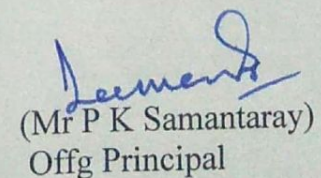 (Mr P K Samantaray)
Offg Principal